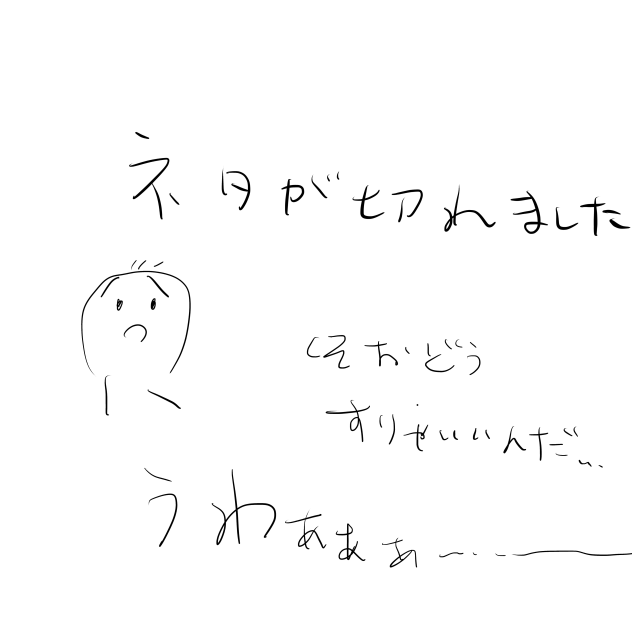 ネタが切れました
くそおどう
すりゃいいんだ…
うわぁぁぁー…